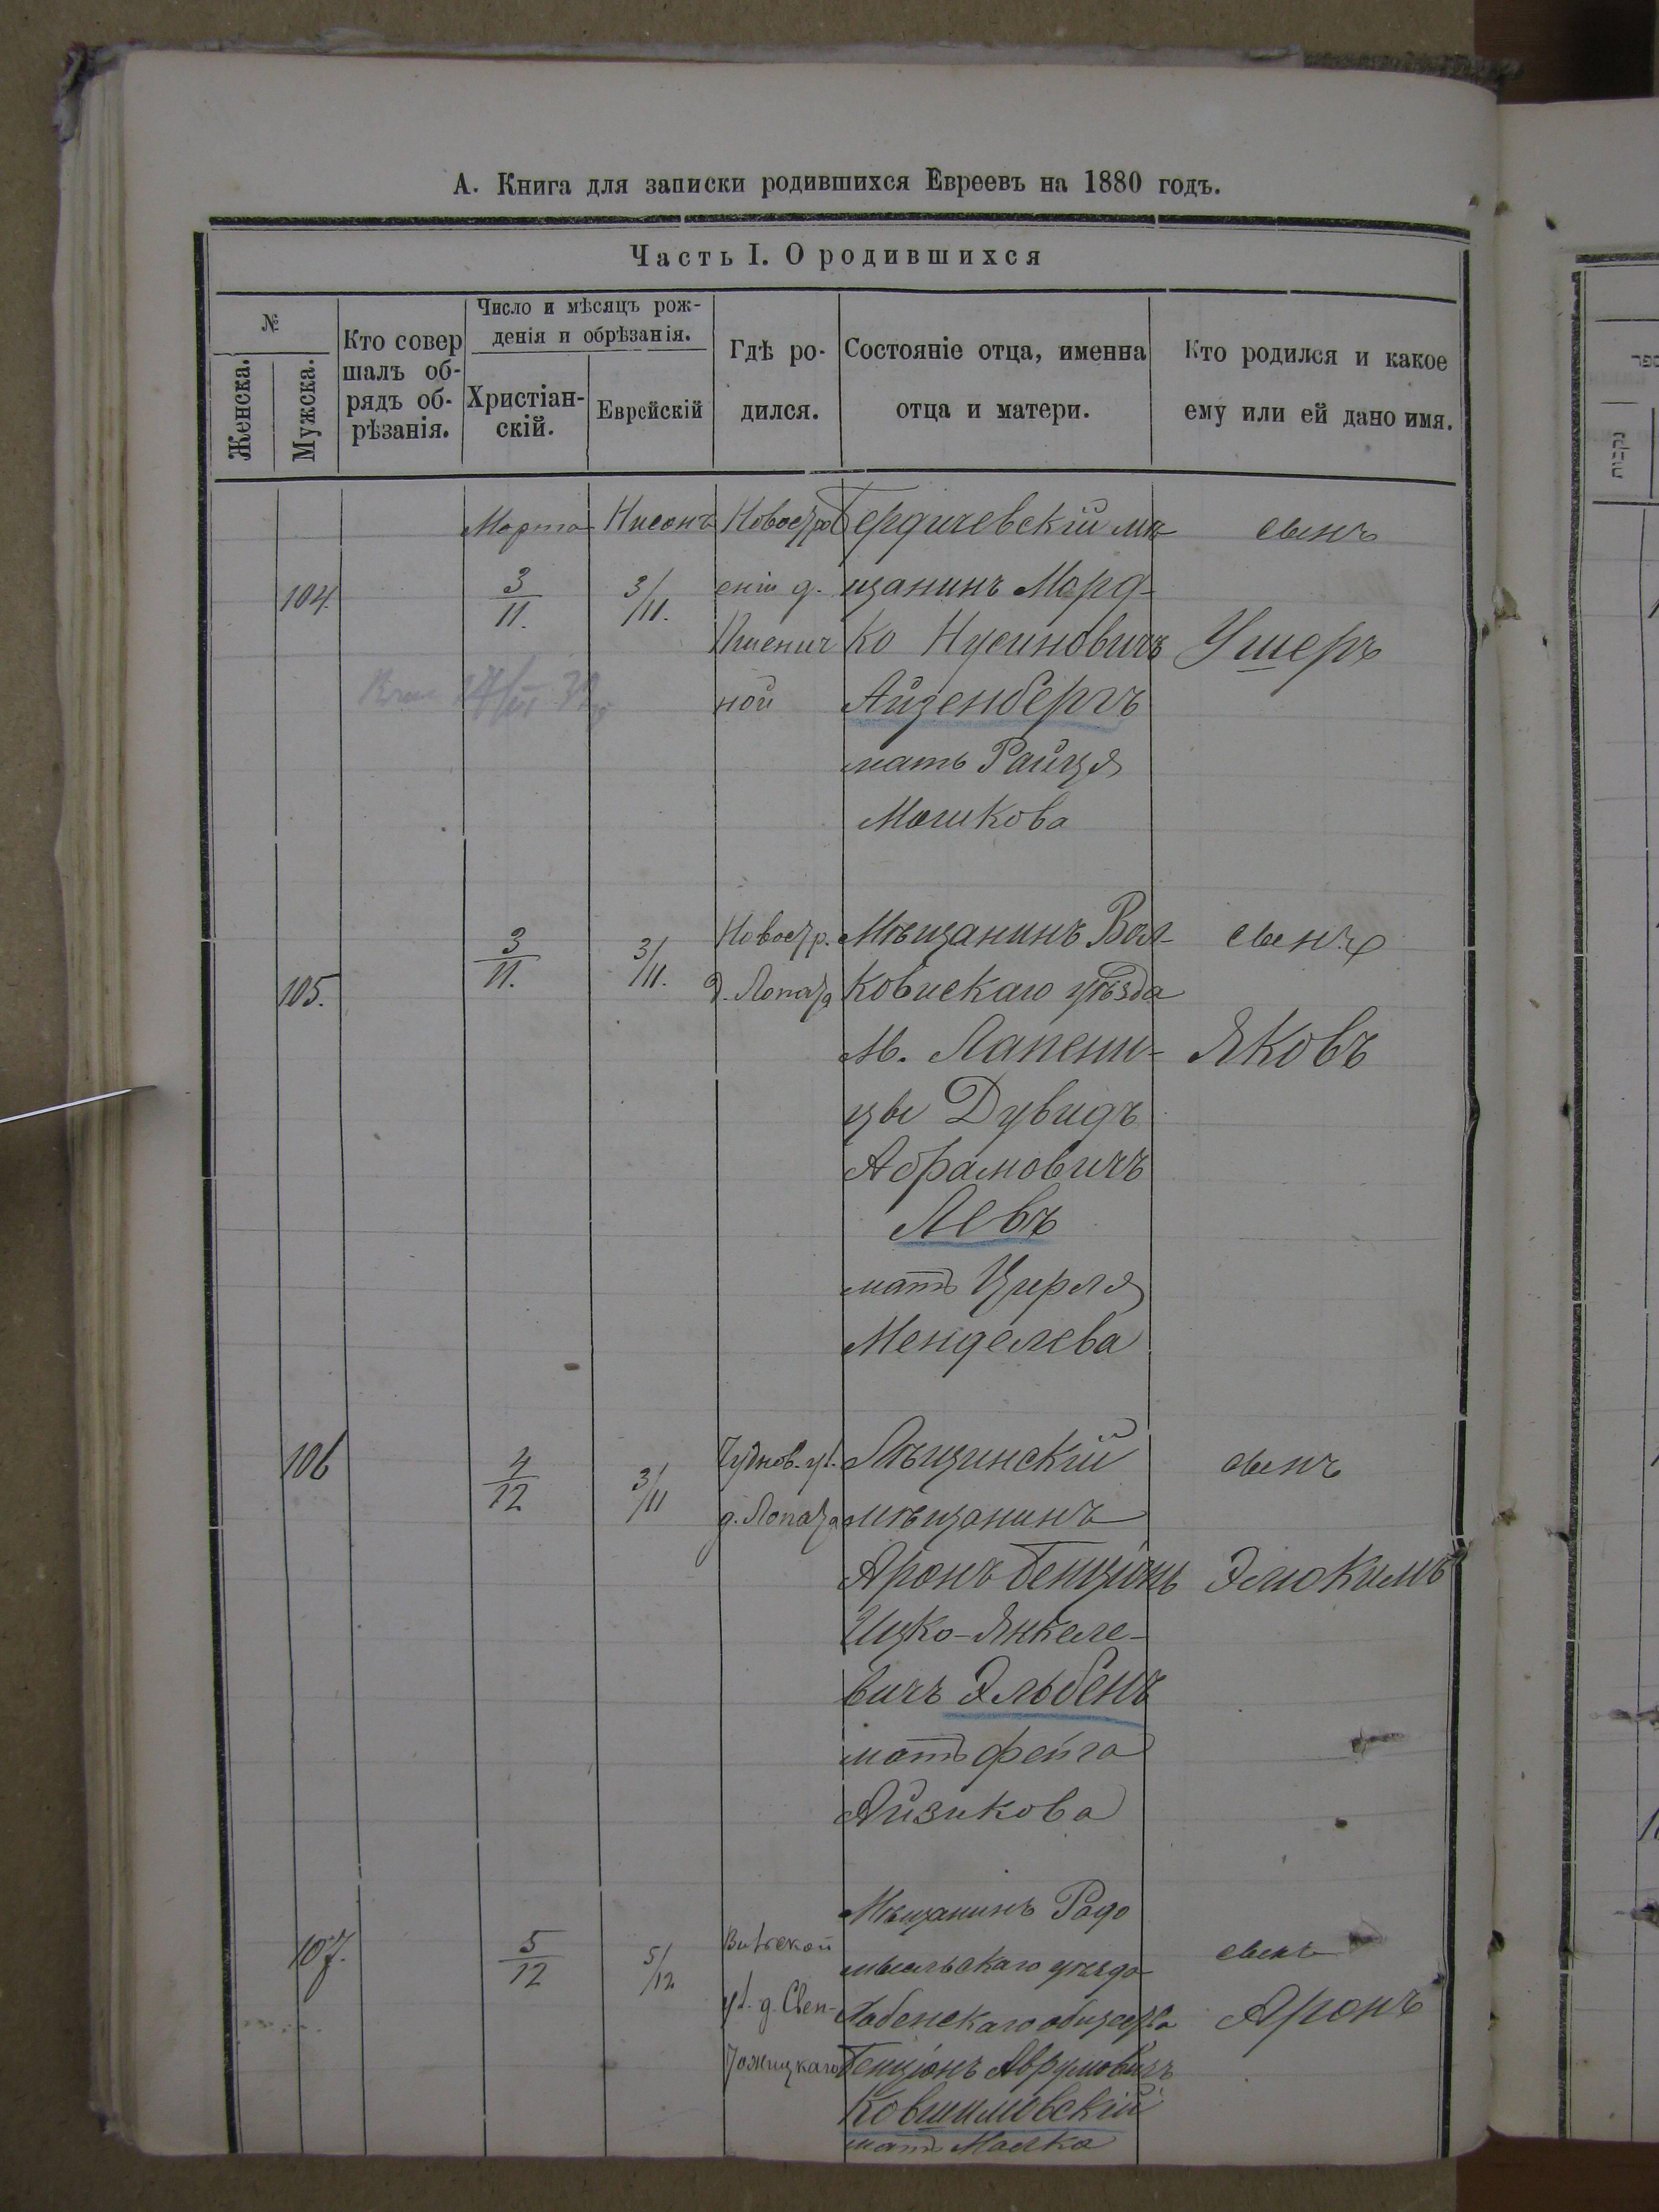 А. Книга для записки родившихся Евреевъ на 1880 годъ.
Часть I. О родившихся
№
Женска.
Мужска.
Кто совер
шалъ об-
рядъ об-
рѣзанія.
Число и мѣсяцъ рож-
денія и обрѣзанія.
Христіан-
скій.
Еврейскій
Гдѣ ро-
дился.
Состояніе отца, именна
отца и матери.
Кто родился и какое
ему или ей дано имя.
104.
Марта
3/11.
Нисонъ
3/11.
Новостро
еніи д.
Пшенич
ной
Бердичевскій мѣ
щанинъ Морд-
ко Нусиновичъ
Айзенбергъ
мать Райця
Мошкова
сынъ
Ушеръ
105.
3/11.
3/11.
Новостр.
д.
Мѣщанинъ Вол-
ковискаго уѣзда
м. Лапени-
цы Дувидъ
Абрамовичъ
Левъ
мать Цирля
Менделева
сынъ
Яковъ
106
4/12
3/11
Чуднов. ул.
д.
мѣщанинъ
Аронъ Бенціонъ
Ицко-Янкеле-
вичъ Эльбенъ
мать Фейга
Айзикова
сынъ
Элюкимъ
107.
5/12
5/12
ул. д. Свен-
тожицкаго
Мѣщанинъ Радо
мысльскаго уѣзда
общества
Бенціонъ Аврумовичъ
Ковшиловскій
мать Малка
сынъ
Аронъ